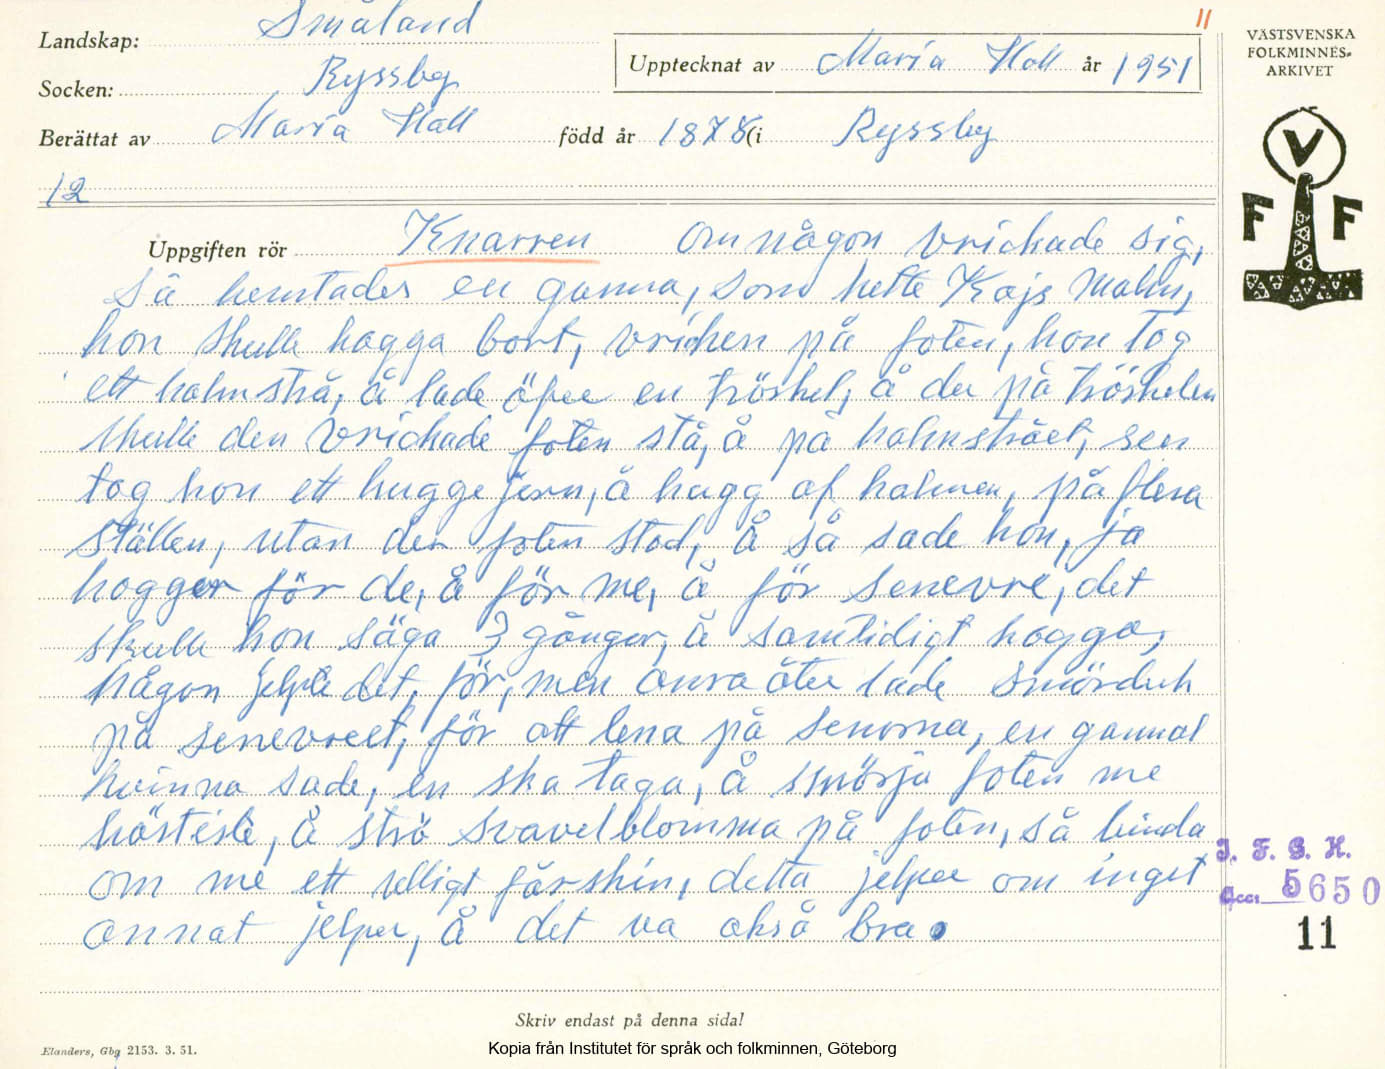 11
Landskap: Småland
Socken: Ryssby
Upptecknat av Maria Hall år 1951
Berättat av Maria Hall född år 1878 i Ryssby
12
VÄSTSVENSKA
FOLKMINNES-
ARKIVET
V
F F
Uppgiften rör Knarren Om någon vrickade sig,
så hemtades en gumma, som hette Kajs Malin,
hon skulle hagga bort, vricken på foten, hon tog
ett halmstrå, å lade öfver en tröskel, å der på tröskelen
skulle den vrickade foten stå, å på halmstrået, sen
tog hon ett huggejern, å hagg af halmen, på flera
ställen, utan der foten stod, å så sade hon, ja
hogger för de, å för me, å för senevre, det
skulle hon säga 3 gånger, å samtidigt hogga,
någon jelpte det, för, men anra åter lade smörduk
på senevreet, för att lena på senorna, en gammal
kvinna sade, en ska taga, å smörja foten me
höstister, å strö svavelblomma på foten, så binda
om me ett ulligt fårskin, detta jelper om inget
annat jelper, å det va också bra.
I. F. G. H.
Acc. 5650
11
Skriv endast på denna sida!
Elanders, Gbg 2153. 3. 51.
Kopia från Institutet för språk och folkminnen, Göteborg